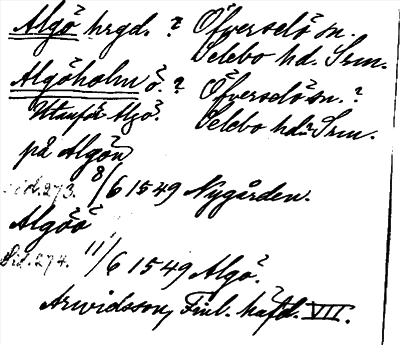 Algö hrgd. ? Öfverselö sn.
Selebo hd. Srm.
Algöholm ö. ? Öfverselö sn. ?
Utanför Algö. Selebo hd. Srm.
på Algön
Sid. 273. 8/6 1549 Nygården.
Algöö
Sid. 274. 11/6 1549 Algö.
Arwidsson, Finl. häfd. VII.